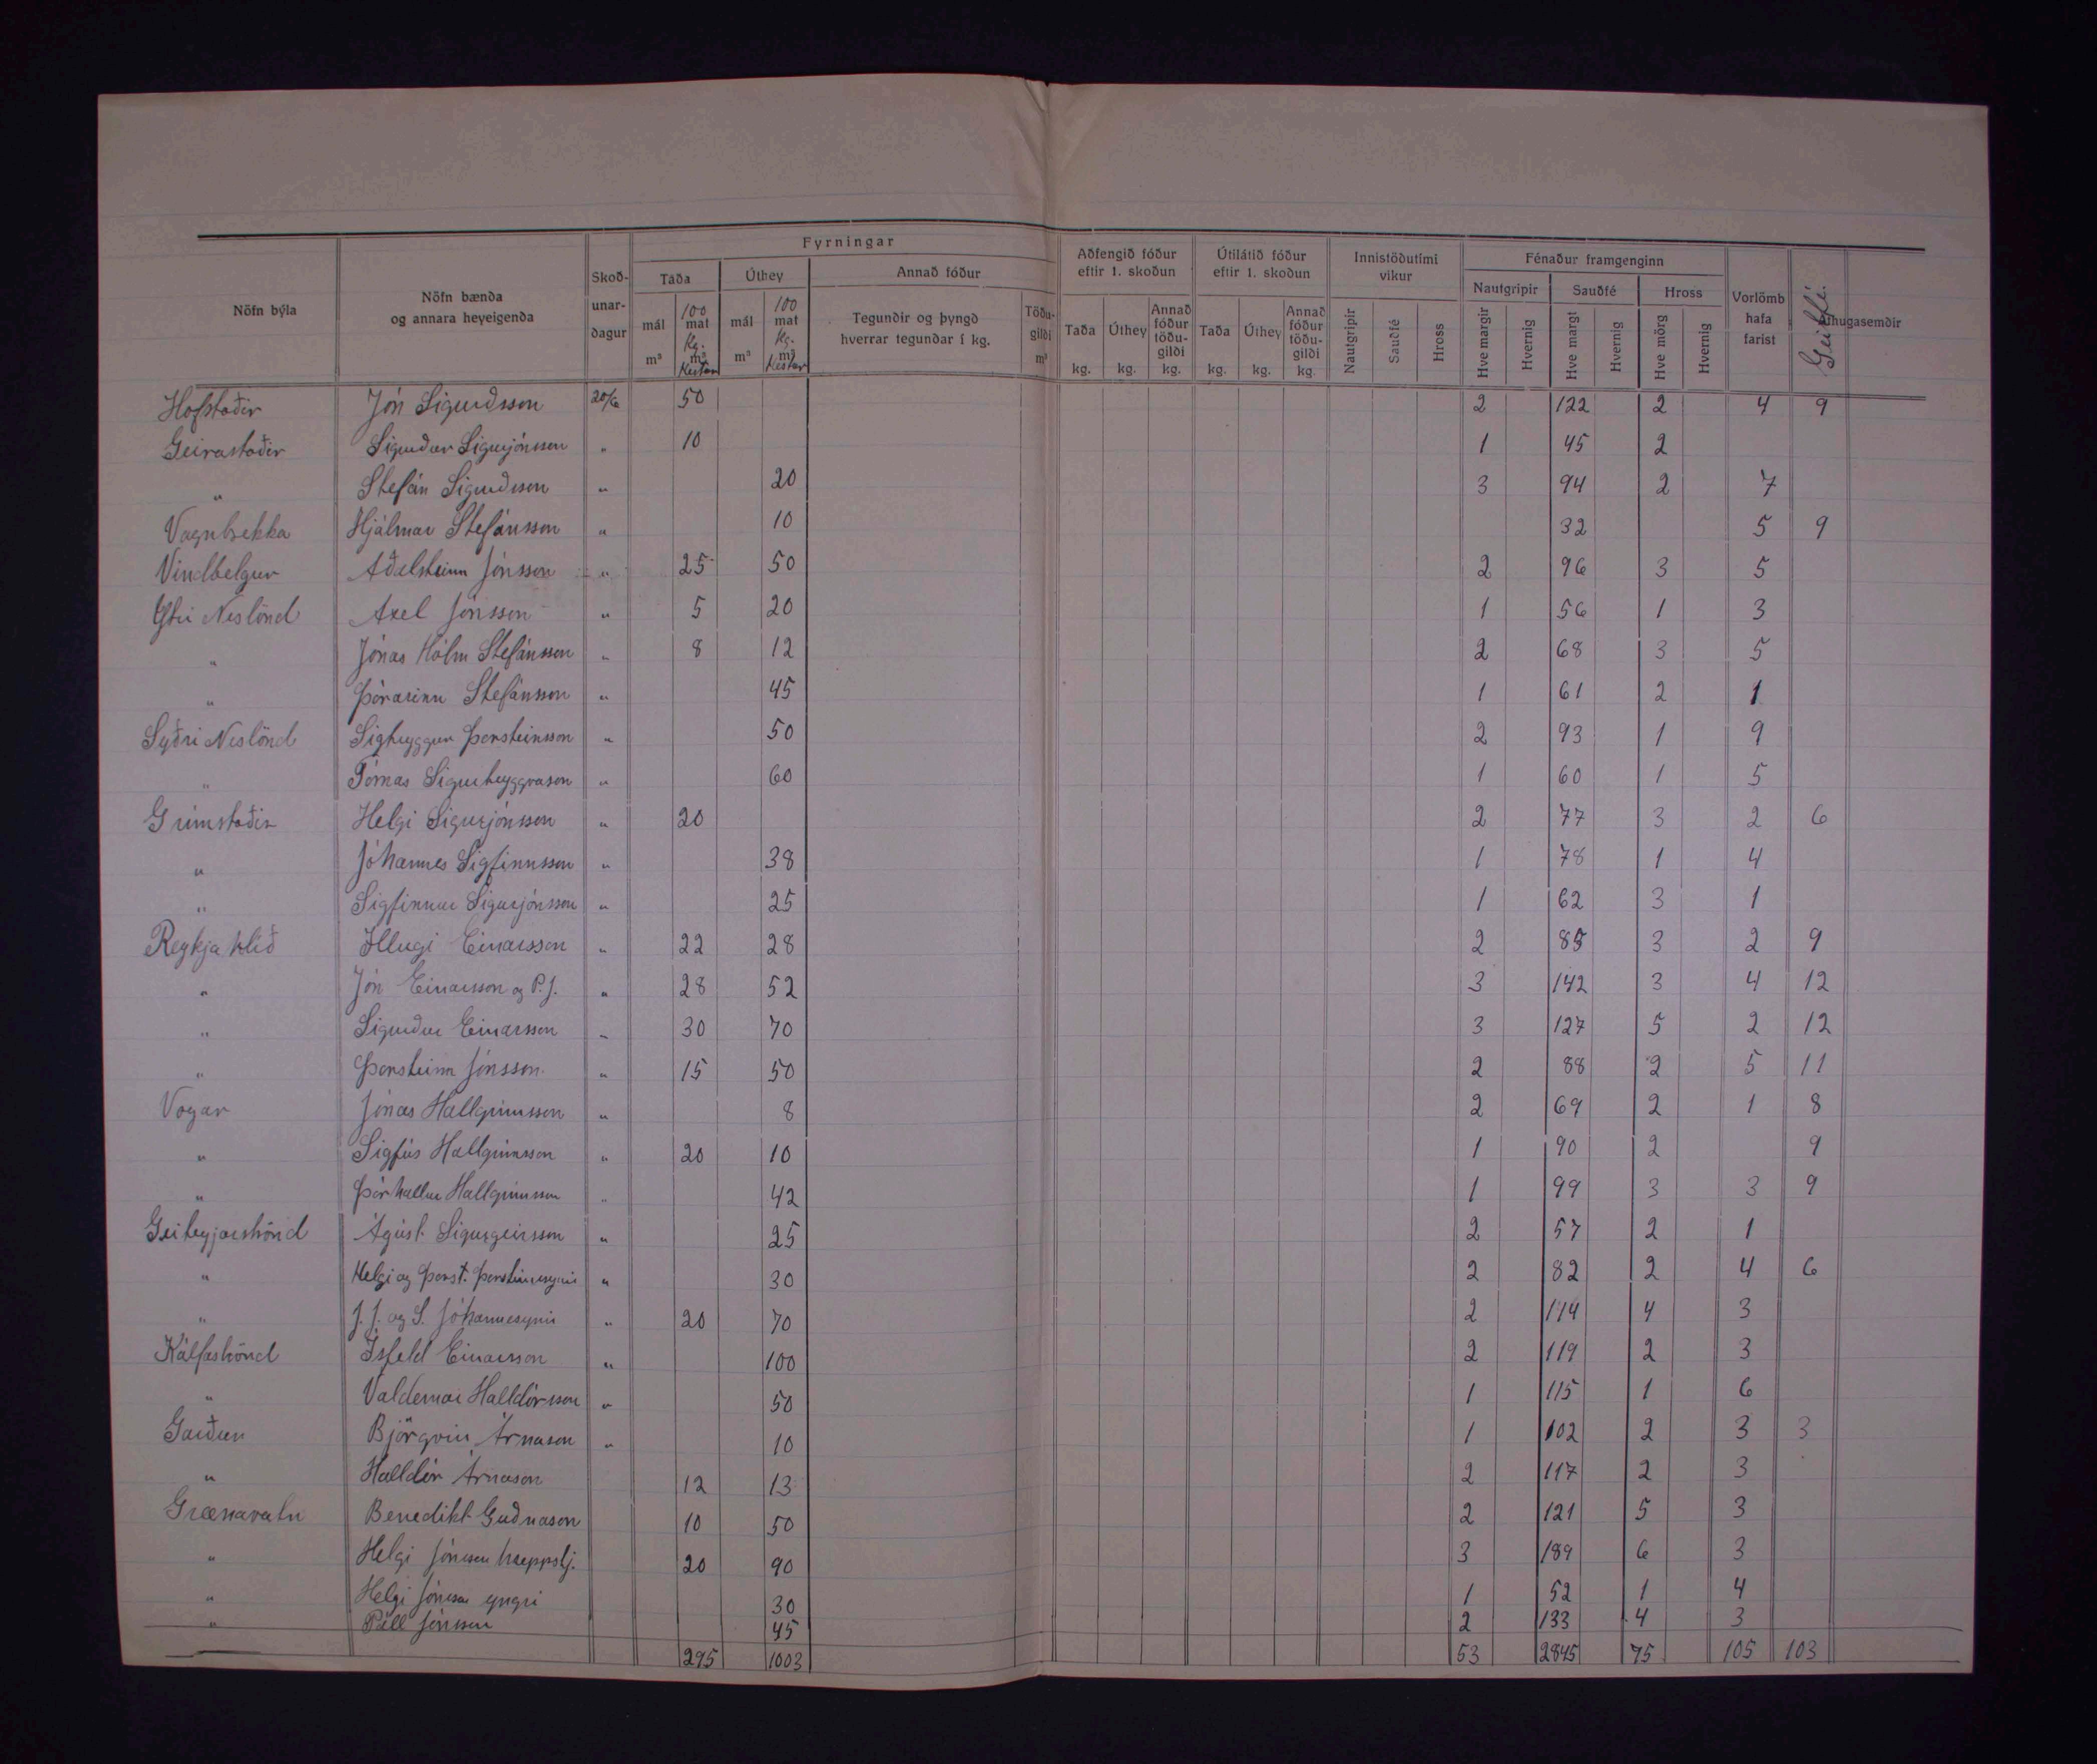 Fyrningar
Nöfn býla | Nöfn bænda og annara heyeigenda | Skoðunardagur | Taða mál m³ | Taða 100 mat kg. m³ Hestar | Úthey mál m³ | Úthey 100 mat kg. m³ Hestar | Annað fóður Tegundir og þyngd hverrar tegundar í kg. | Töðugildi m³ | Aðfengið fóður eftir 1. skoðun Taða kg. | Úthey kg. | Annað fóður töðugildi kg. | Útilátið fóður eftir 1. skoðun Taða kg. | Úthey kg. | Annað fóður töðugildi kg. | Innistöðutími vikur Nautgripir | Sauðfé | Hross | Fénaður framgenginn Nautgripir Hve margir | Hvernig | Sauðfé Hve margt | Hvernig | Hross Hve mörg | Hvernig | Vorlömb hafa farist | Geitfé. | Athugasemdir
Hofstaðir Jón Sigurðsson 20/6 50 2 122 2 4 9
Geirastaðir Sigurður Sigurjónsson " 10 1 45 2
" Stefán Sigurðsson " 20 3 94 2 7
Vagnbrekka Hjálmar Stefánsson " 10 32 5 9
Vindbelgur Aðalsteinn Jónsson " 25 50 2 96 3 5
Ytri Neslönd Axel Jónsson " 5 20 1 56 1 3
" Jónas Hólm Stefánsson " 8 12 2 68 3 5
" Þórarinn Stefánsson " 45 1 61 2 1
Syðri Neslönd Sigtryggur Þorsteinsson " 50 2 93 1 9
" Tómas Sigurtryggvason " 60 1 60 1 5
Grímstaðir Helgi Sigurjónsson " 20 2 77 3 2 6
" Jóhannes Sigfinnsson " 38 1 78 1 4
" Sigfinnur Sigurjónsson " 25 1 62 3 1
Reykjahlíð Illugi Einarsson " 22 28 2 85 3 2 9
" Jón Einarsson og P.J. " 28 52 3 142 3 4 12
" Sigurður Einarsson " 30 70 3 127 5 2 12
" Þorsteinn Jónsson " 15 50 2 88 2 5 11
Vogar Jónas Hallgrímsson " 8 2 69 2 1 8
" Sigfús Hallgrímsson " 20 10 1 90 2 9
" Þórhallur Hallgrímsson " 42 1 99 3 3 9
Geiteyjarströnd Ágúst Sigurgeirsson " 25 2 57 2 1
" Helgi og Þorst. Þorsteinssynir " 30 2 82 2 4 6
" J. J. og S. Jóhannessynir " 20 70 2 114 4 3
Kálfaströnd Ísfeld Einarsson " 100 2 119 2 3
" Valdemar Halldórsson " 50 1 115 1 6
Garður Björgvin Árnason " 10 1 102 2 3 3
" Halldór Árnason 12 13 2 117 2 3
Grænavatn Benedikt Guðnason 10 50 2 121 5 3
" Helgi Jónsson hreppstj. 20 90 3 189 6 3
" Helgi Jónsson yngri 30 1 52 1 4
" Páll Jónsson 45 2 133 4 3
295 1003 53 2845 75 105 103